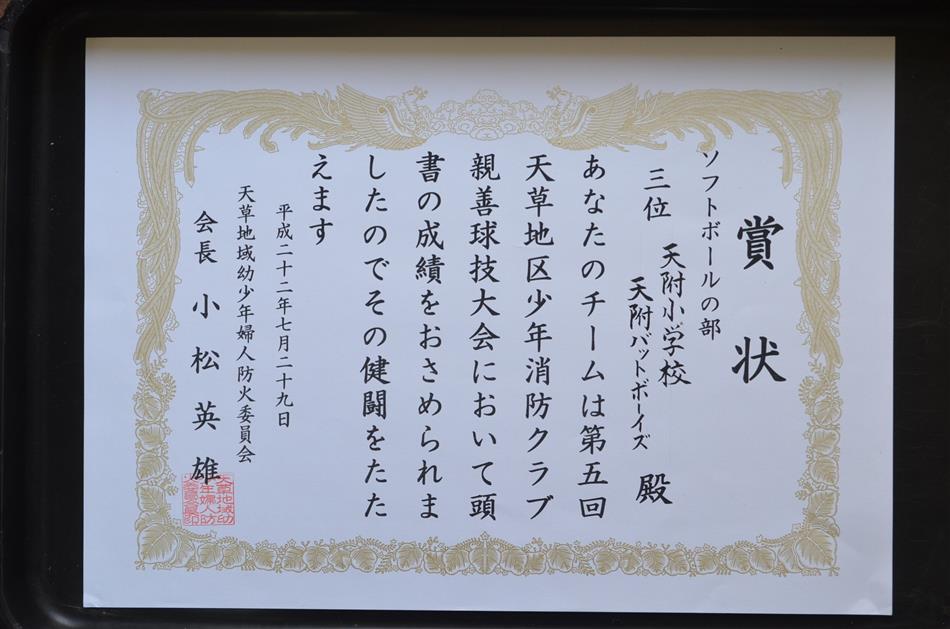 賞状
ソフトボールの部
三位 天附小学校
天附バットボーイズ 殿
あなたのチームは第五回
天草地区少年消防クラブ
親善球技大会において頭
書の成績をおさめられま
したのでその健闘をたた
えます
平成二十二年七月二十九日
天草地域幼少年婦人防火委員会
会長 小松英雄
天草地域幼
少年婦人防
火委員会印